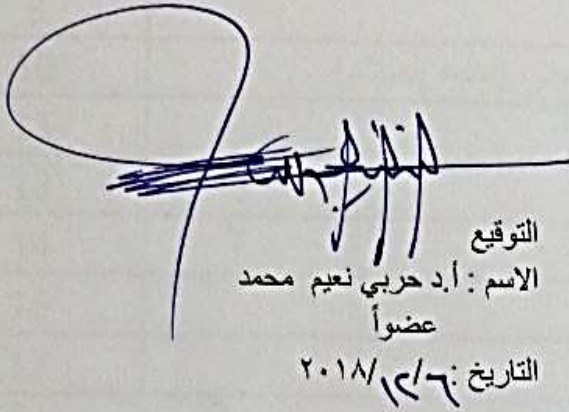 التوقيع
الاسم : أ.د حربي نعيم محمد
عضواً
التاريخ : ٦/١٢/٢٠١٨